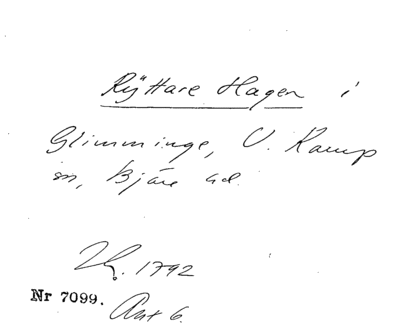 Ryttare Hagen i
Glimminge, V. Karup
sn, Bjäre hd.
1792
Nr 7099.
Akt 6.